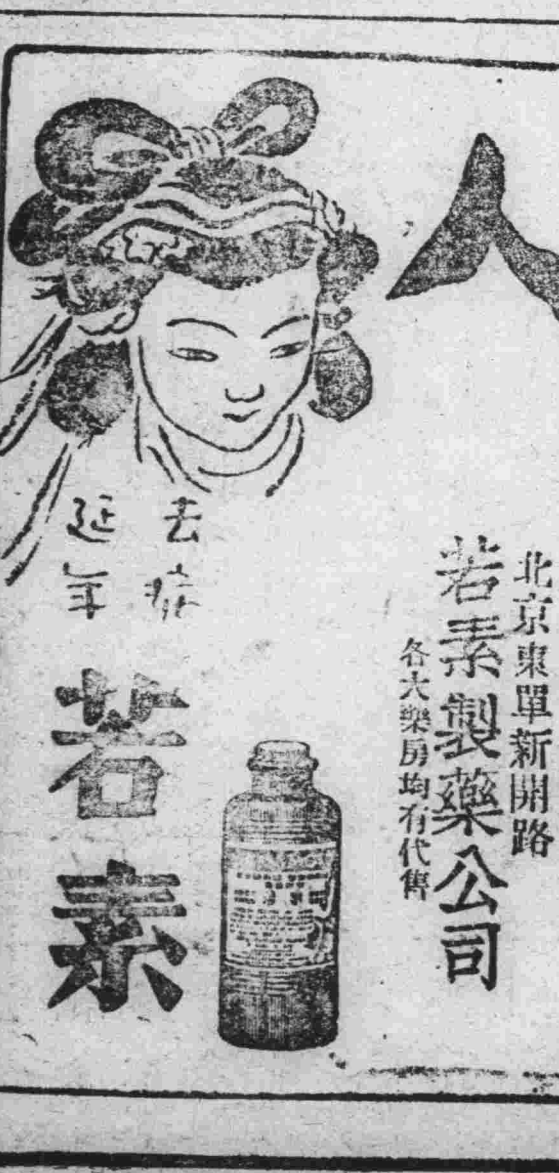 人
北京東單新開路
若素製藥公司
各大藥房均有代售
去症
延年
若素